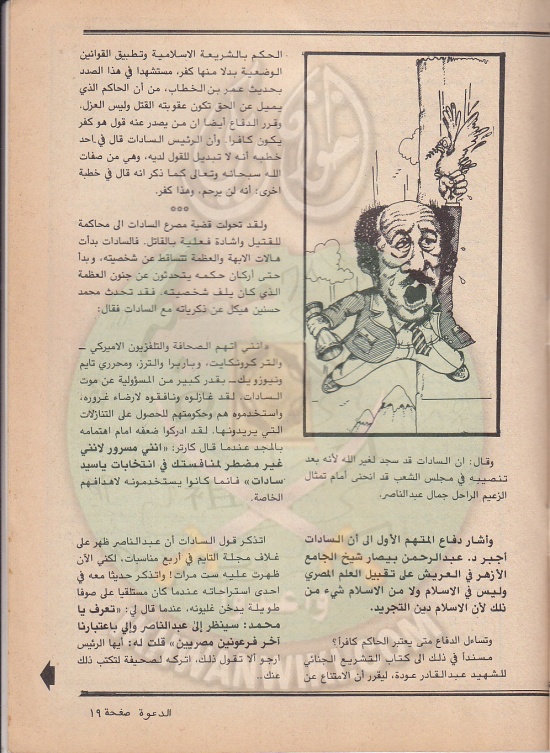 وقال: ان السادات قد سجد لغير الله لأنه بعد
تنصيبه في مجلس الشعب قد انحنى أمام تمثال
الزعيم الراحل جمال عبدالناصر.
وأشار دفاع المتهم الأول الى أن السادات
أجبر د. عبدالرحمن بيصار شيخ الجامع
الأزهر في العريش على تقبيل العلم المصري
وليس في الاسلام ولا من الاسلام شيء من
ذلك لأن الاسلام دين التجريد.
وتساءل الدفاع متى يعتبر الحاكم كافراً؟
مسنداً في ذلك الى كتاب التشريع الجنائي
للشهيد عبدالقادر عودة، ليقرر أن الامتناع عن
الحكم بالشريعة الاسلامية وتطبيق القوانين
الوضعية بدلا منها كفر، مستشهدا في هذا الصدد
بحديث عمر بن الخطاب، من أن الحاكم الذي
يميل عن الحق تكون عقوبته القتل وليس العزل.
وقرر الدفاع أيضا ان من يصدر عنه قول هو كفر
يكون كافرا. وأن الرئيس السادات قال في احد
خطبه أنه لا تبديل للقول لديه، وهي من صفات
الله سبحانه وتعالى كما ذكر انه قال في خطبة
اخرى: أنه لن يرحم، وهذا كفر.
***
ولقد تحولت قضية مصرع السادات الى محاكمة
للقتيل واشادة فعلية بالقاتل. فالسادات بدأت
هالات الابهة والعظمة تتساقط عن شخصيته، وبدأ
حتى أركان حكمه يتحدثون عن جنون العظمة
الذي كان يلف شخصيته، فقد تحدث محمد
حسنين هيكل عن ذكرياته مع السادات فقال:
«وانني اتهم الصحافة والتلفزيون الاميركي –
والتر كرونكايت، وباربرا والترز، ومحرري تايم
ونيوزويك – بقدر كبير من المسؤولية عن موت
السادات. لقد غازلوه ونافقوه لارضاء غروره،
واستخدموه هم وحكومتهم للحصول على التنازلات
التي يريدونها. لقد ادركوا ضعفه امام اهتمامه
بالمجد عندما قال كارتر: «انني مسرور لانني
غير مضطر لمنافستك في انتخابات ياسيد
سادات» فانما كانوا يستخدمونه لاهدافهم
الخاصة.
اتذكر قول السادات أن عبدالناصر ظهر على
غلاف مجلة التايم في أربع مناسبات، لكني الآن
ظهرت عليه ست مرات! واتذكر حديثا معه في
احدى استراحاته عندما كان مستلقيا على صوفا
طويلة يدخن غليونه، عندما قال لي: «تعرف يا
محمد: سينظر إلى عبدالناصر وإلي باعتبارنا
آخر فرعونين مصريين» قلت له: أيها الرئيس
ارجو ألا تقول ذلك، اتركه لصحيفة لتكتب ذلك
عنك..
الدعوة صفحة ١٩